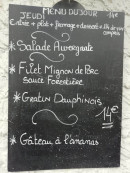 MENU DU JOUR
JEUDI 14€
Entrée + plat + fromage + dessert + 1/4 de vin
compris
* Salade Auvergnate
* Filet Mignon de Porc
Sauce Forestière
* Gratin Dauphinois
14€
* Gâteau à l'ananas